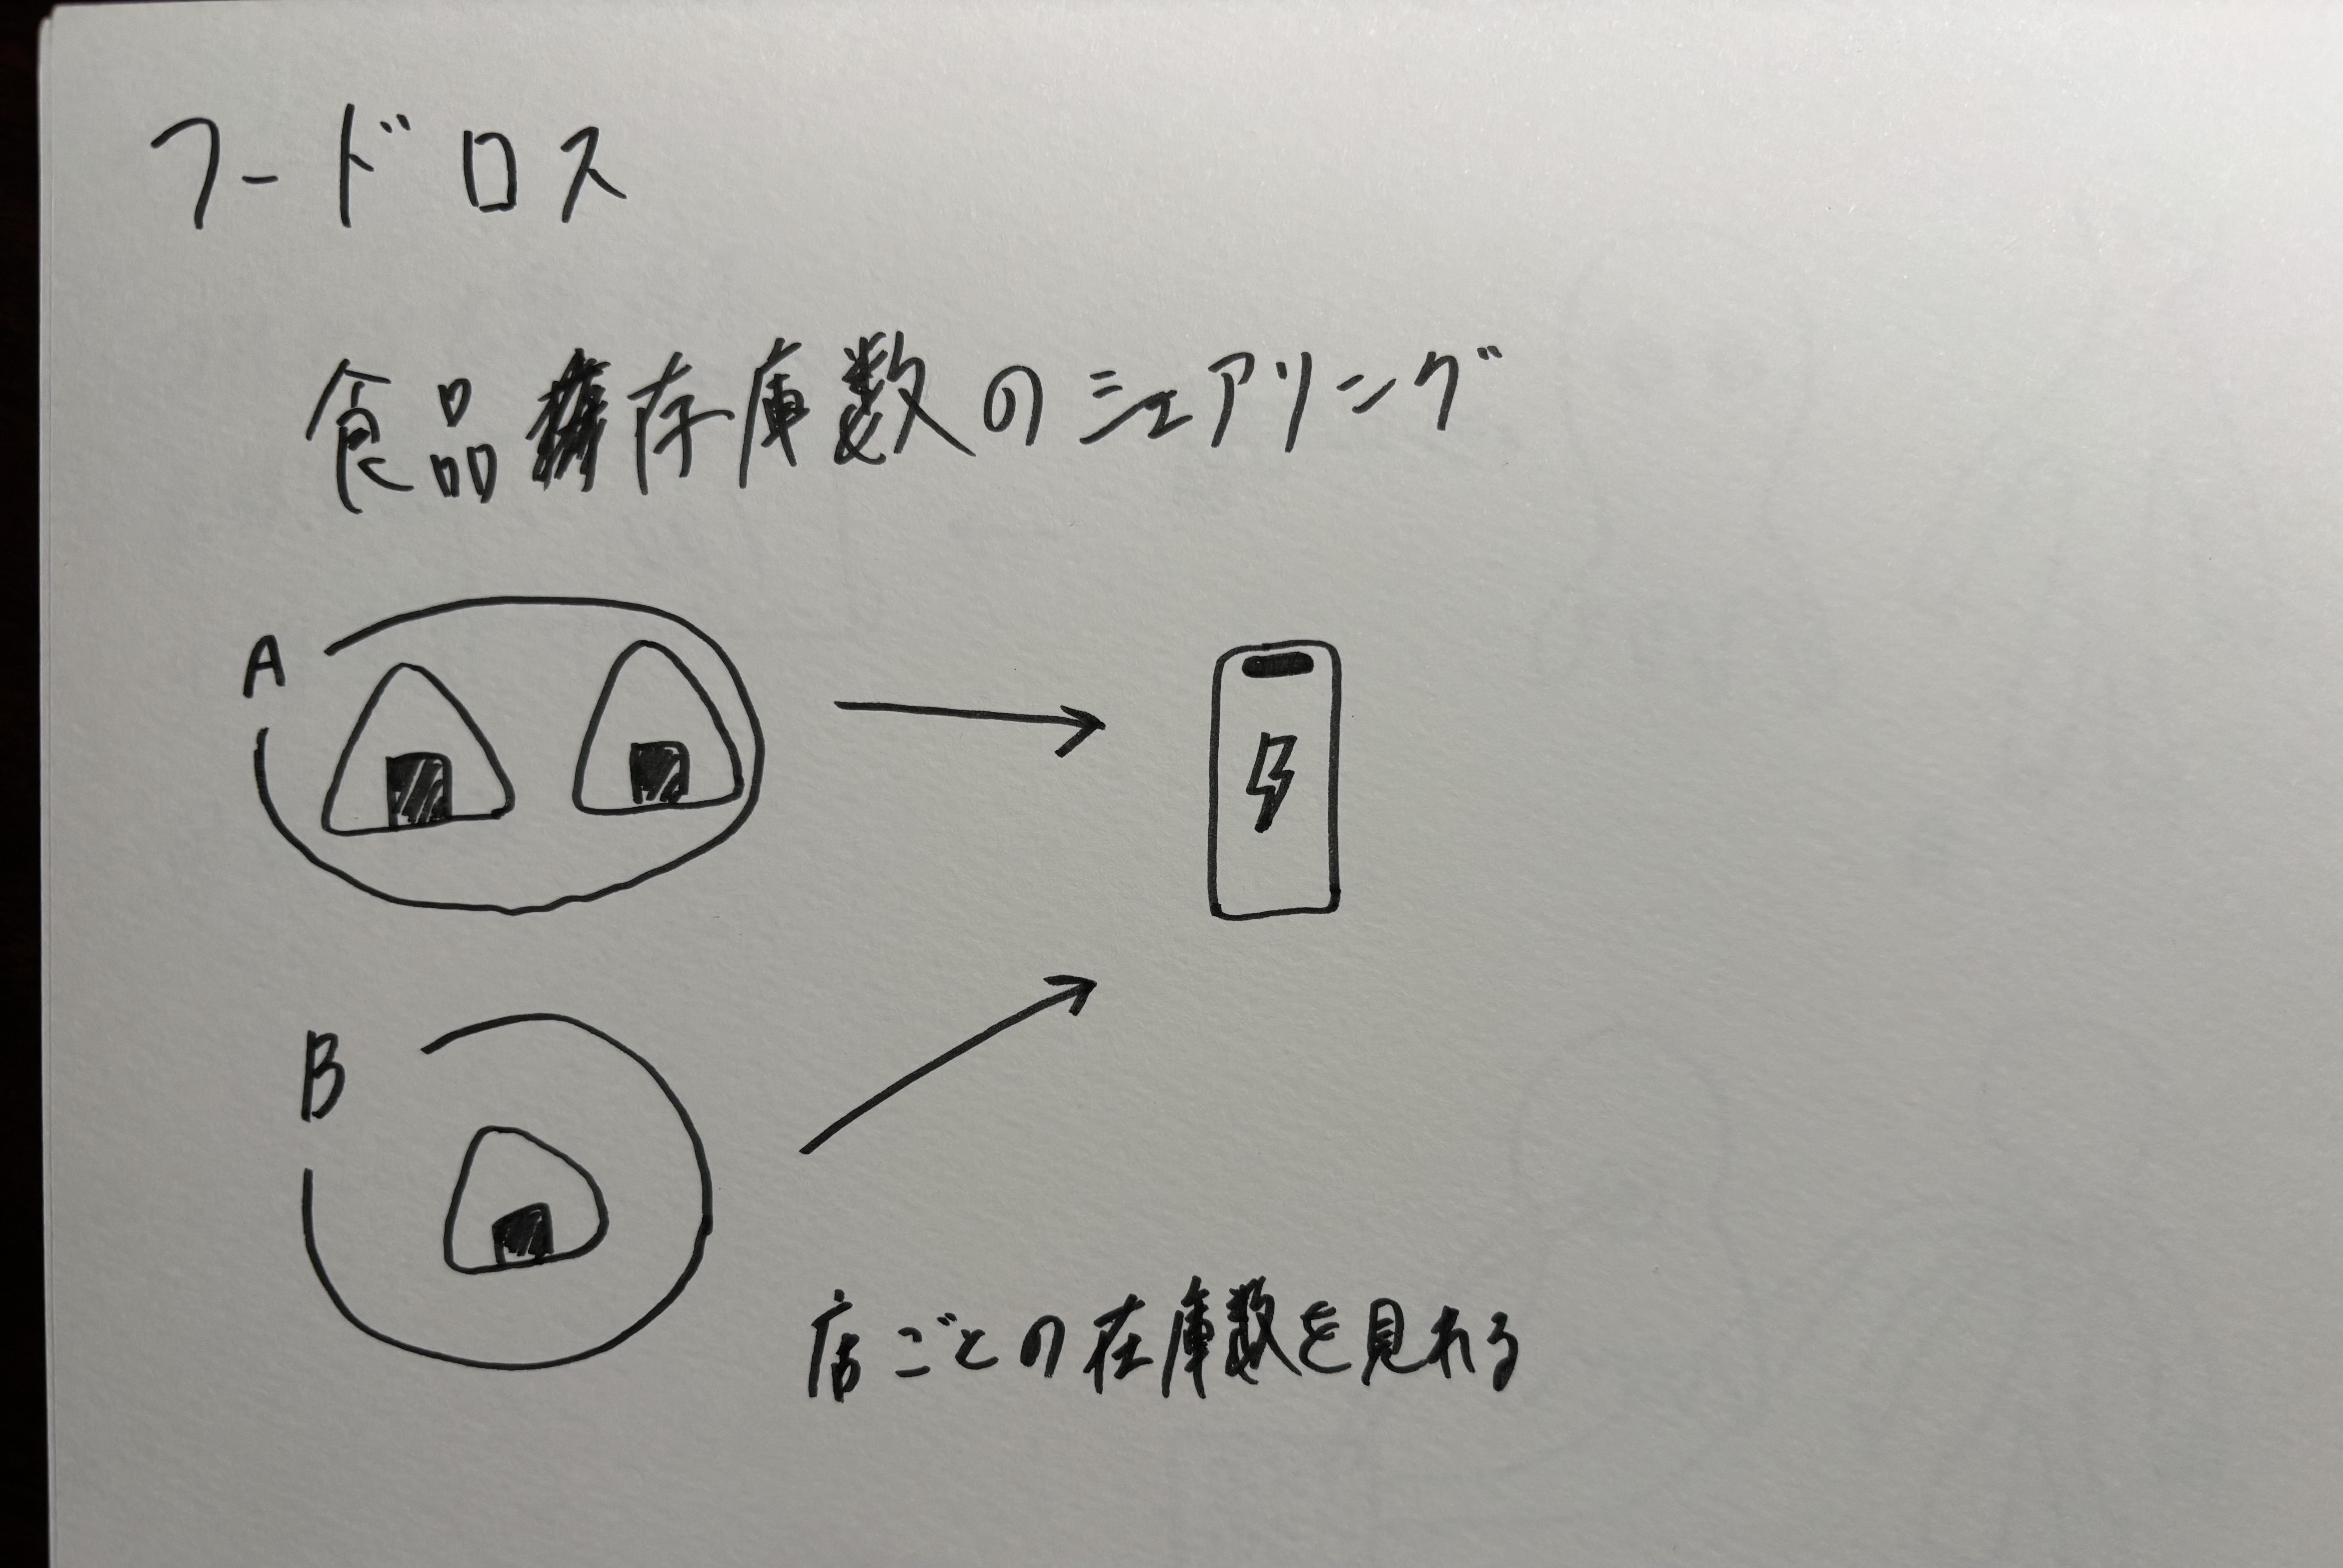 フードロス
食品存庫数のシェアリング
A
B
店ごとの在庫数を見れる